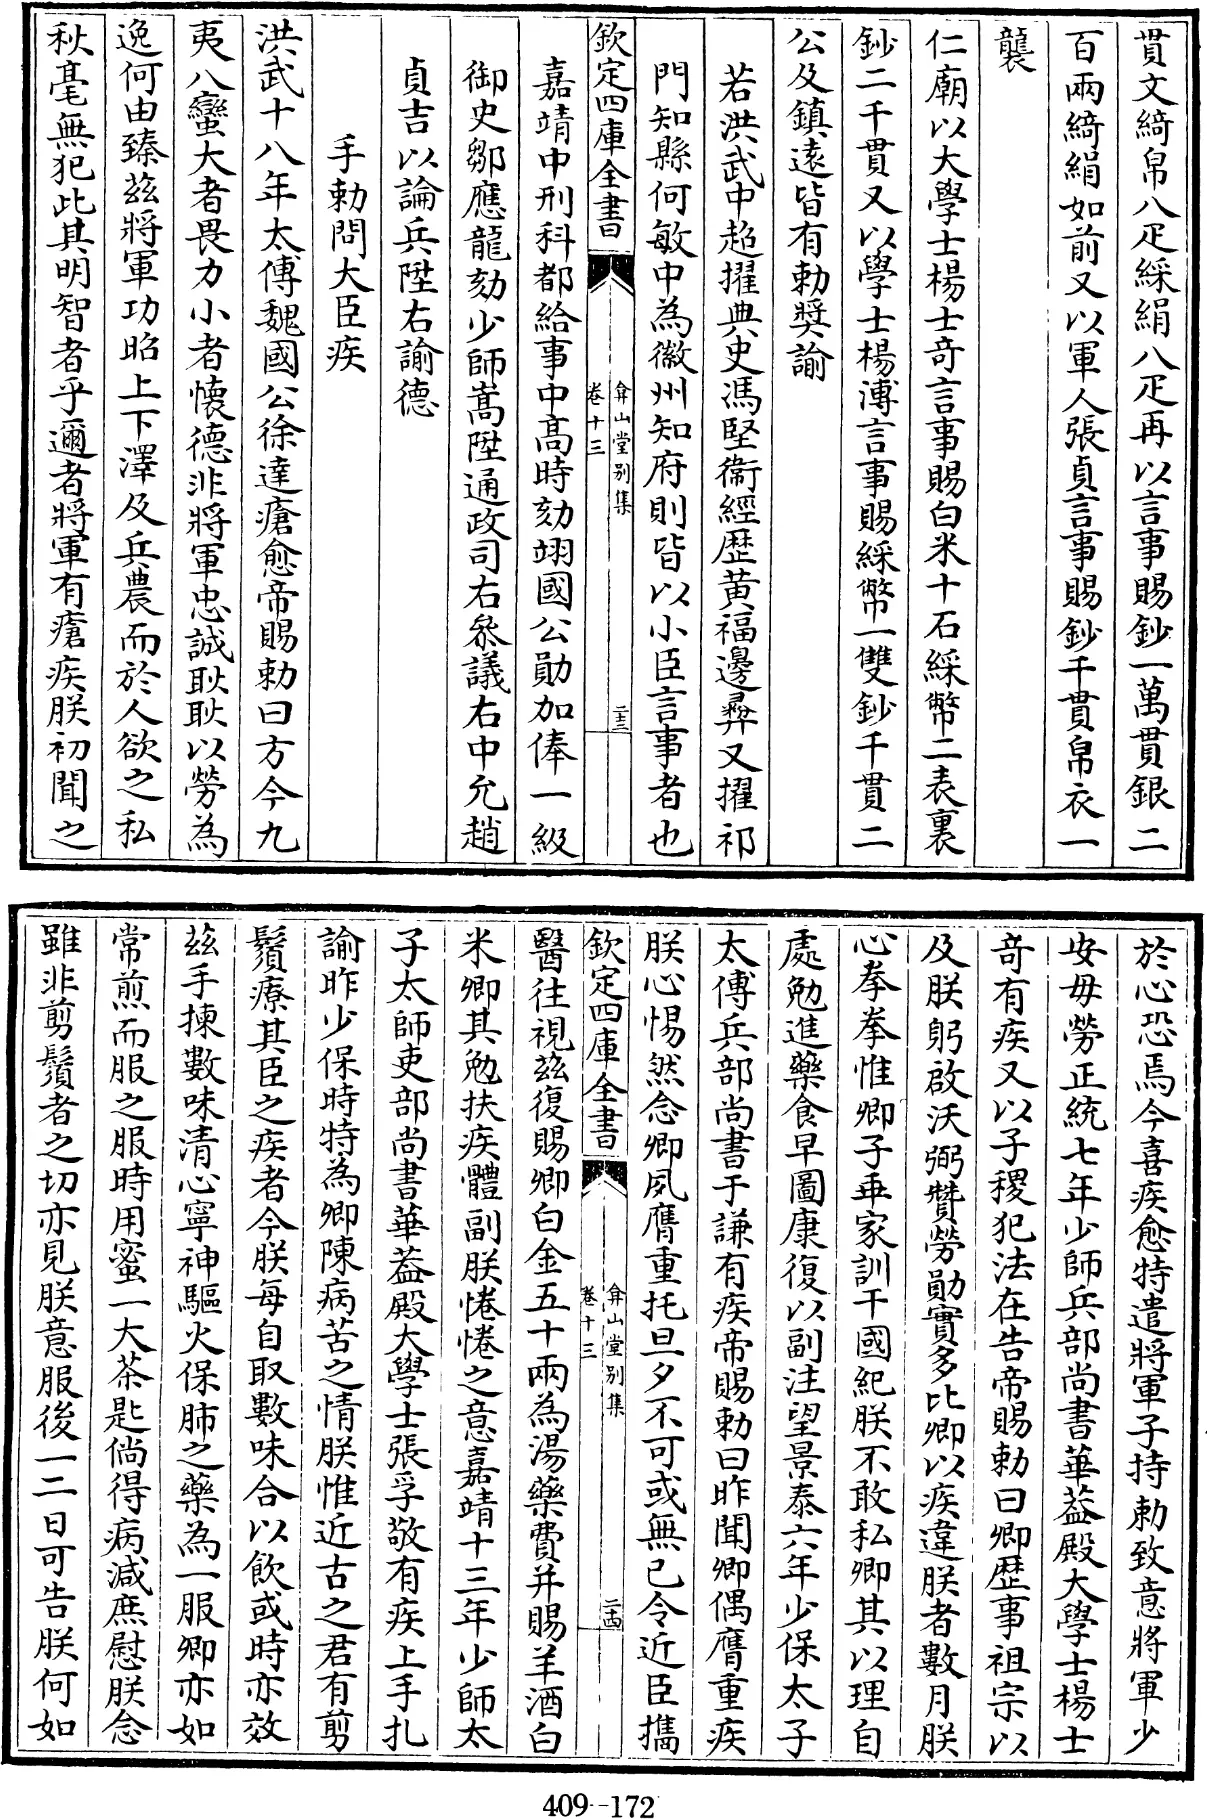 貫文綺帛八疋綵絹八疋再以言事賜鈔一萬貫銀二
百兩綺絹如前又以軍人張貞言事賜鈔千貫帛衣一
襲
仁廟以大學士楊士奇言事賜白米十石綵幣二表裏
鈔二千貫又以學士楊溥言事賜綵幣一雙鈔千貫二
公及鎮遠皆有勅獎諭
若洪武中超擢典史馮堅衞經歷黄福邊彛又擢祁
門知縣何敏中為徽州知府則皆以小臣言事者也
欽定四庫全書
弇山堂别集
卷十三
二十三
嘉靖中刑科都給事中髙時劾翊國公勛加俸一級
御史鄒應龍劾少師嵩陞通政司右叅議右中允趙
貞吉以論兵陞右諭德
手勅問大臣疾
洪武十八年太傅魏國公徐達瘡愈帝賜勅曰方今九
夷八蠻大者畏力小者懐德非將軍忠誠耿耿以勞為
逸何由臻兹將軍功昭上下澤及兵農而於人欲之私
秋毫無犯此其明智者乎邇者將軍有瘡疾朕初聞之
於心恐焉今喜疾愈特遣將軍子持勅致意將軍少
安毋勞正統七年少師兵部尚書華葢殿大學士楊士
奇有疾又以子稷犯法在告帝賜勅曰卿歴事祖宗以
及朕躬啟沃弼贊勞勛實多比卿以疾違朕者數月朕
心拳拳惟卿子乖家訓干國紀朕不敢私卿其以理自
處勉進藥食早圖康復以副注望景泰六年少保太子
太傅兵部尚書于謙有疾帝賜勅曰昨聞卿偶膺重疾
朕心惕然念卿夙膺重托旦夕不可或無已令近臣攜
欽定四庫全書
弇山堂别集
卷十三
二十四
醫往視兹復賜卿白金五十兩為湯藥費并賜羊酒白
米卿其勉扶疾體副朕惓惓之意嘉靖十三年少師太
子太師吏部尚書華葢殿大學士張孚敬有疾上手札
諭昨少保時特為卿陳病苦之情朕惟近古之君有剪
鬚療其臣之疾者今朕每自取數味合以飲或時亦效
兹手揀數味清心寧神驅火保肺之藥為一服卿亦如
常煎而服之服時用蜜一大茶匙倘得病減庶慰朕念
雖非剪鬚者之切亦見朕意服後一二日可告朕何如
409--172